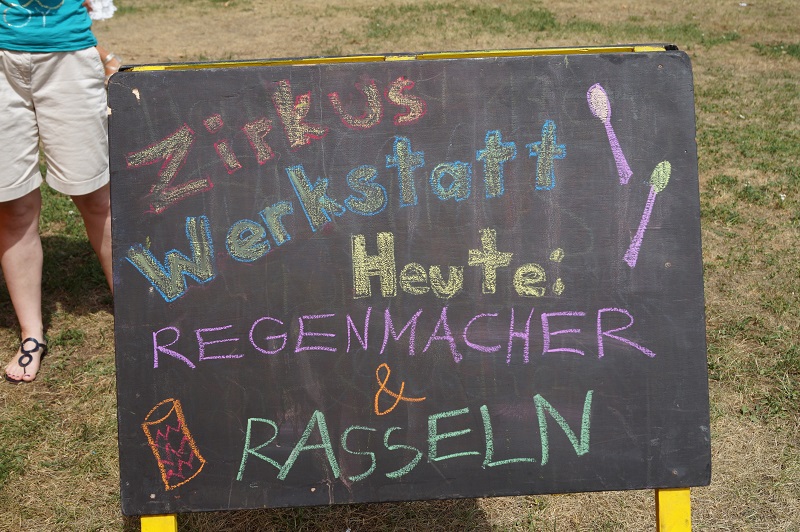 Zirkus
Werkstatt
Heute:
REGENMACHER
&
RASSELN